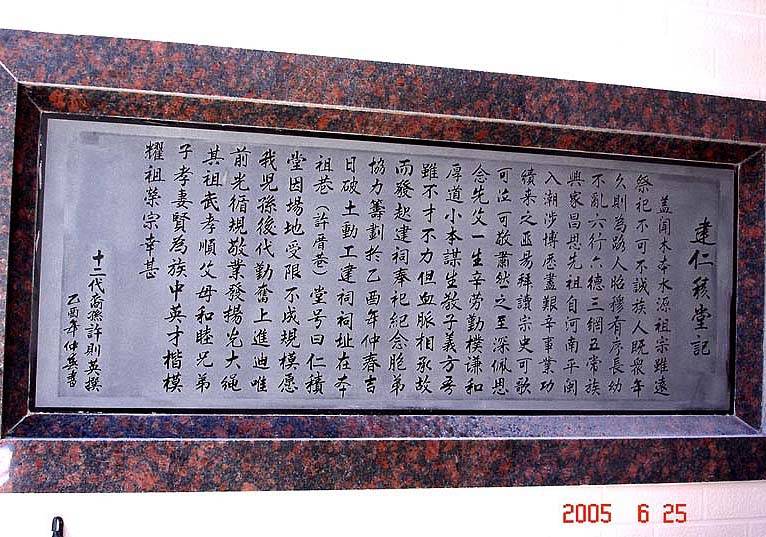 建仁積堂記
蓋聞木本水源祖宗雖遠
祭祀不可不誠族人既衆年
久則為路人昭穆有序長幼
不亂六行六德三綱五常族
興家昌思先祖自河南平閩
入潮涉博歷盡艱辛事業功
績来之亟易拜讀宗史可歌
可泣可敬肅然之至深佩恩
念先父一生辛勞勤樸謙和
厚道小本謀生教子義方吾
雖不才不力但血脈相承故
而發起建祠奉祀紀念胞弟
協力籌劃於乙酉年仲春吉
日破土動工建祠祠址在本
祖巷（許厝巷）堂号曰仁積
堂因場地受限不成規模愿
我兒孫後代勤奮上進迪唯
前光循規敬業發揚光大繩
其祖武孝順父母和睦兄弟
子孝妻賢為族中英才楷模
耀祖榮宗幸甚
十二代裔孫許則英撰
乙酉年仲英書
2005 6 25